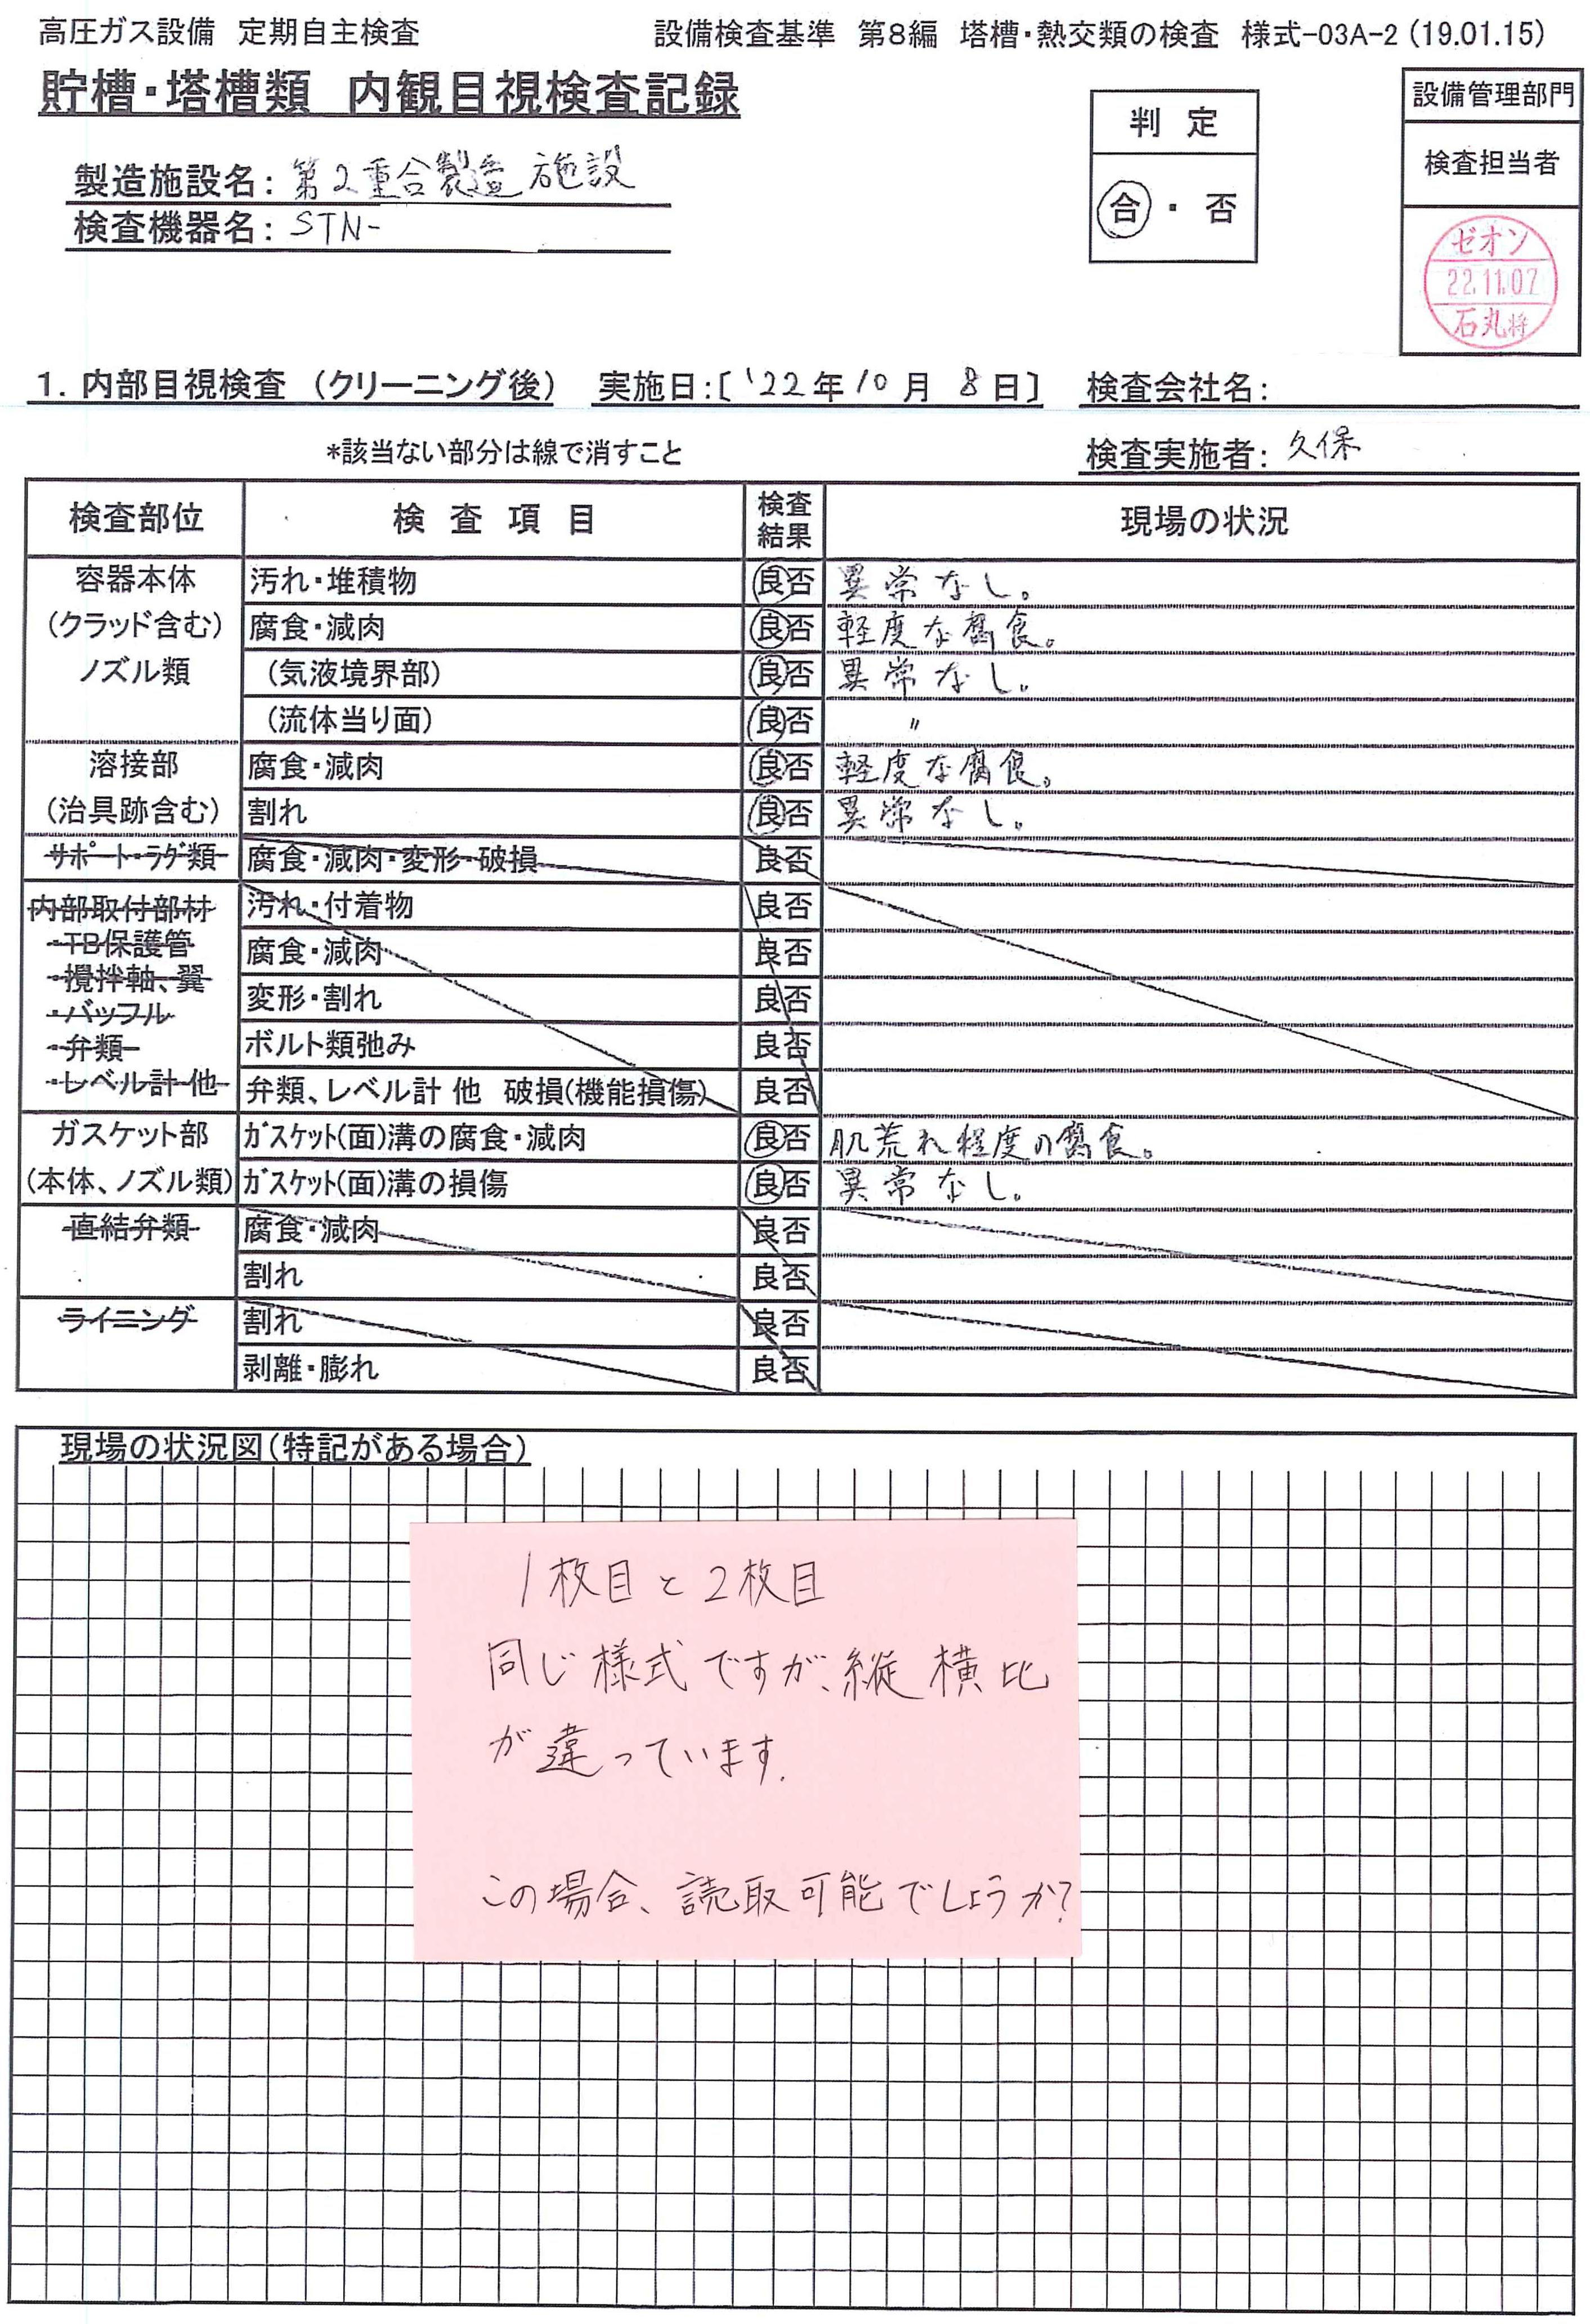 高圧ガス設備 定期自主検査 設備検査基準 第8編 塔槽・熱交類の検査 様式-03A-2 (19.01.15)
貯槽・塔槽類 内観目視検査記録
判 定
合 ・ 否
設備管理部門
検査担当者
ゼオン
22.11.07
石丸将
製造施設名: 第2重合製造施設
検査機器名: STN-
1. 内部目視検査 (クリーニング後) 実施日:[ '22年10月 8日] 検査会社名:
*該当ない部分は線で消すこと 検査実施者: 久保
検査部位 検 査 項 目 検査結果 現場の状況
容器本体 汚れ・堆積物 良否 異常なし。
(クラッド含む) 腐食・減肉 良否 軽度な腐食。
ノズル類 (気液境界部) 良否 異常なし。
(流体当り面) 良否 〃
溶接部 腐食・減肉 良否 軽度な腐食。
(治具跡含む) 割れ 良否 異常なし。
サポート・ラグ類 腐食・減肉・変形・破損 良否
内部取付部材 汚れ・付着物 良否
・TB保護管 腐食・減肉 良否
・攪拌軸、翼
・バッフル 変形・割れ 良否
・弁類 ボルト類弛み 良否
・レベル計 他 弁類、レベル計 他 破損(機能損傷) 良否
ガスケット部 ガスケット(面)溝の腐食・減肉 良否 肌荒れ程度の腐食。
(本体、ノズル類) ガスケット(面)溝の損傷 良否 異常なし。
直結弁類 腐食・減肉 良否
割れ 良否
ライニング 割れ 良否
剥離・膨れ 良否
現場の状況図(特記がある場合)
1枚目と2枚目
同じ様式ですが、縦横比
が違っています.
この場合、読取可能でしょうか?